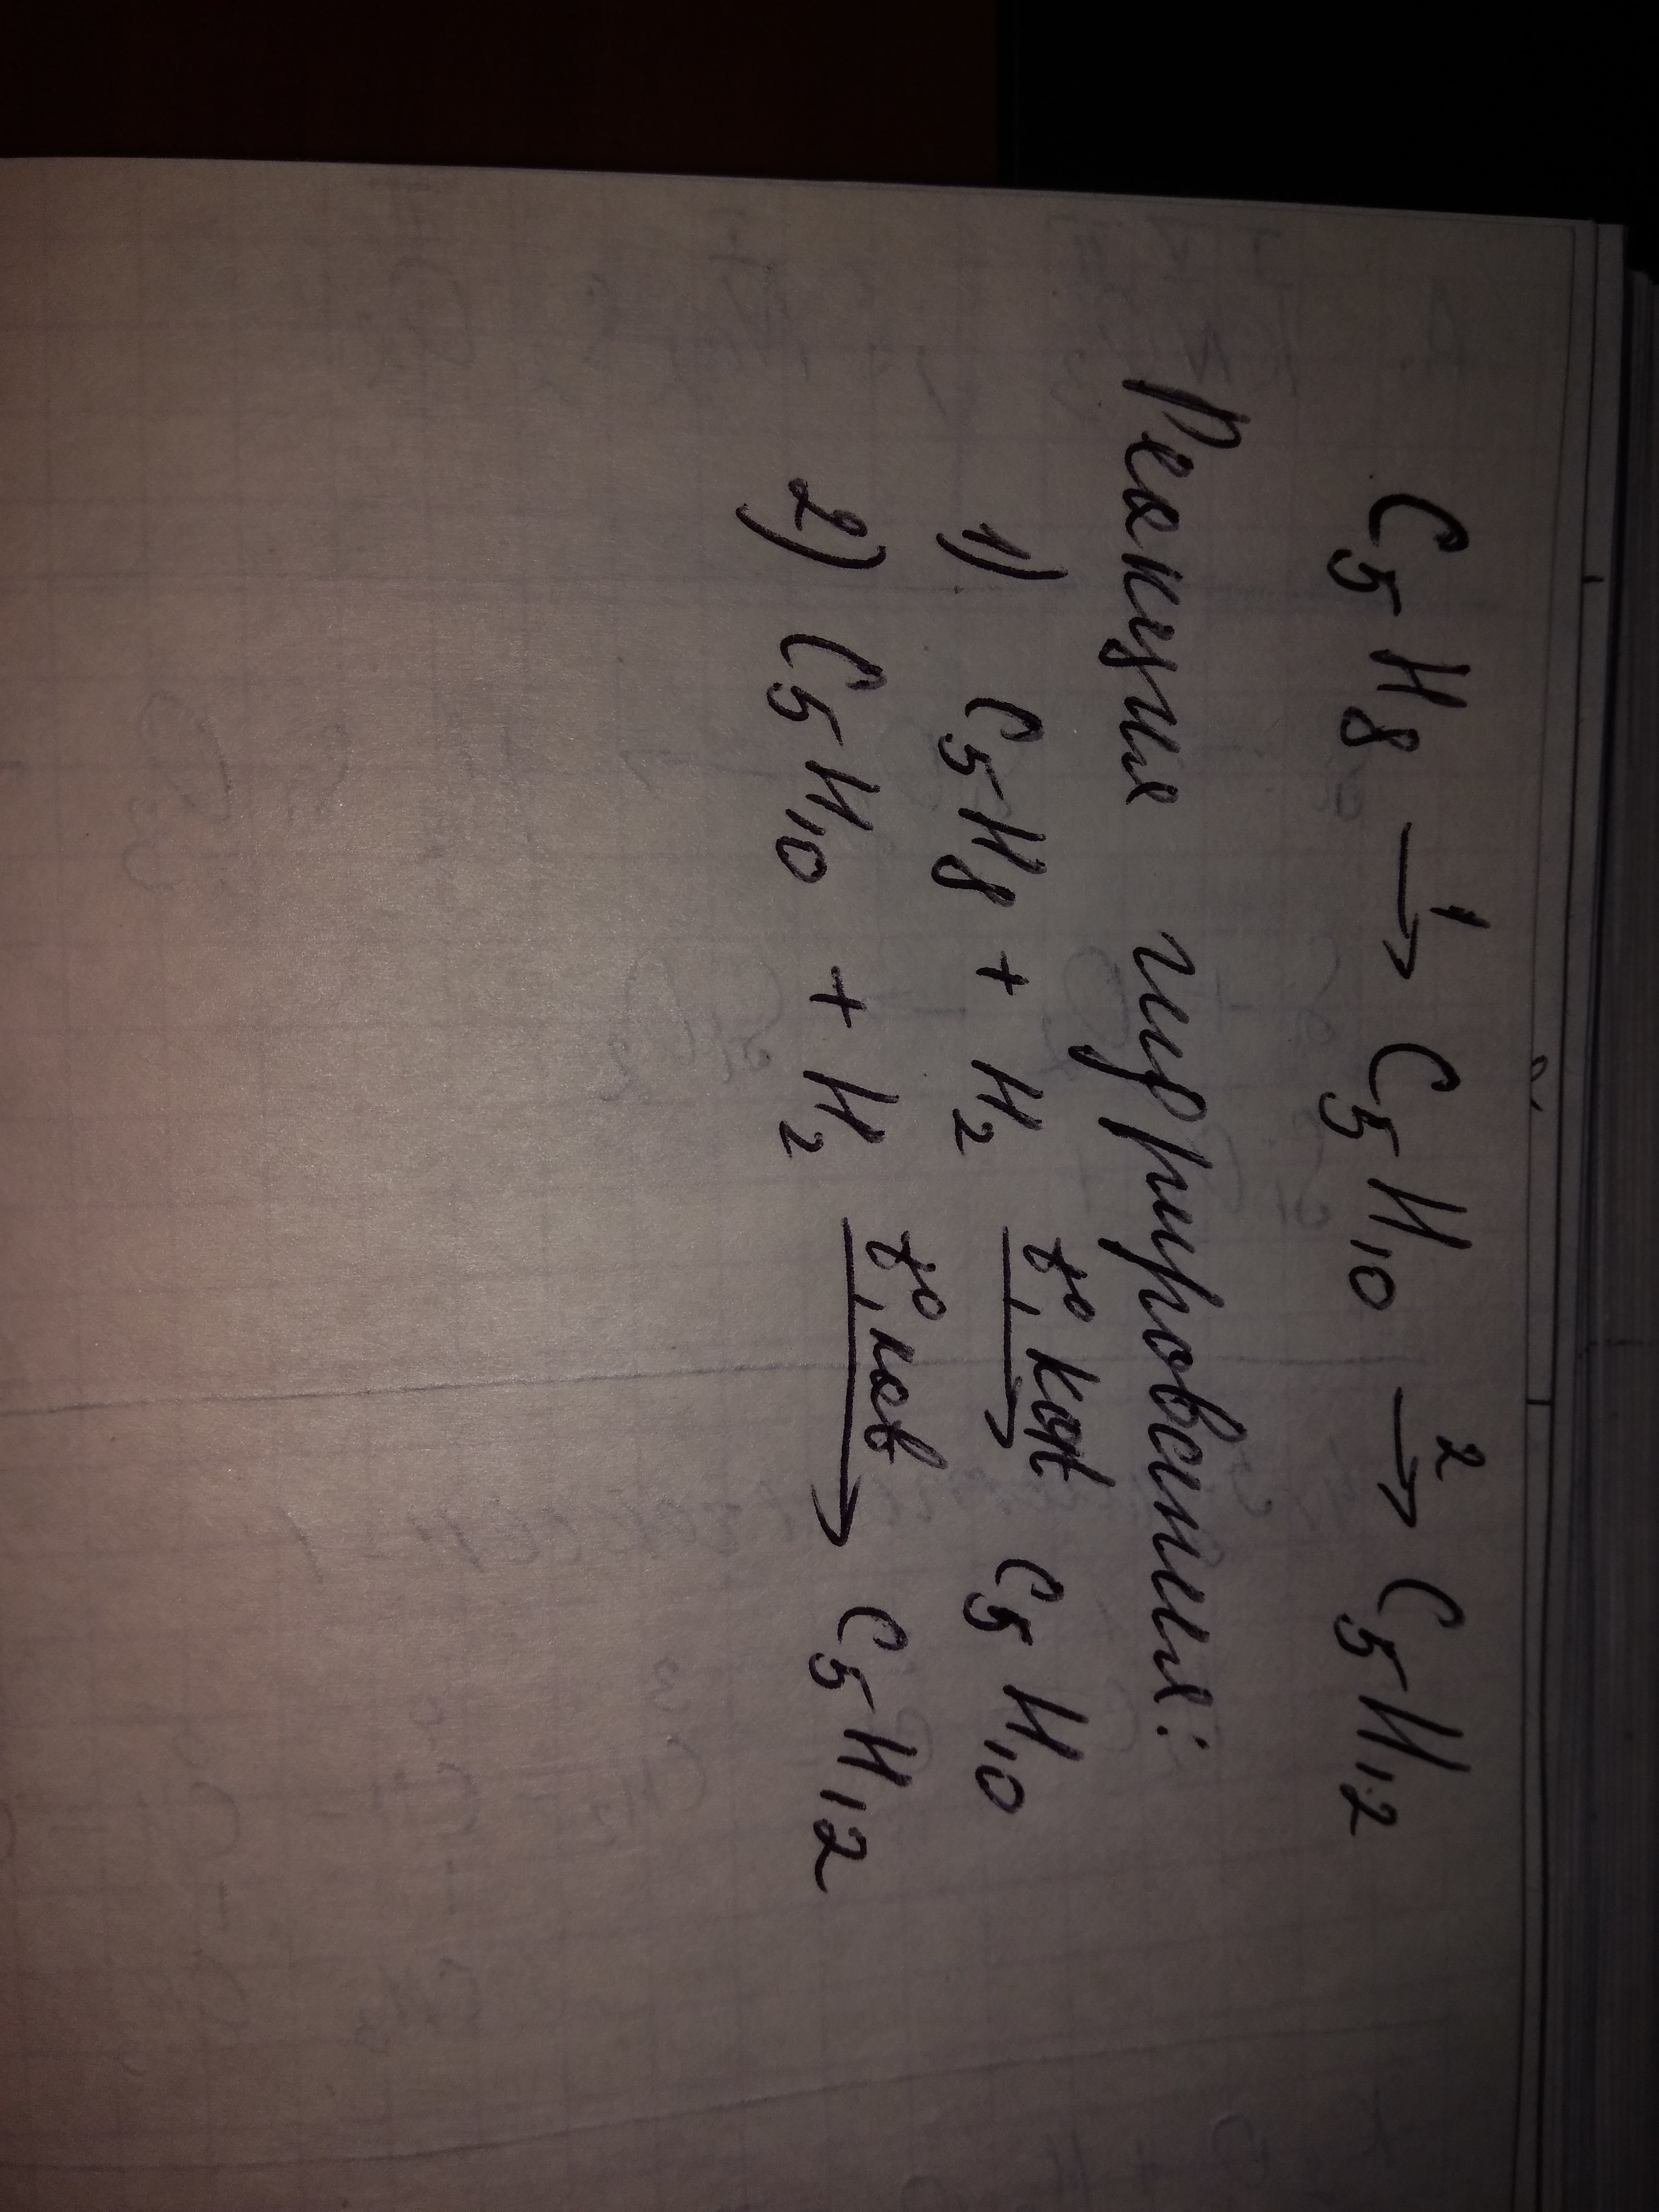 C5H8 →1 C5H10 →2 C5H12
Реакция гидрирования:
1) C5H8 + H2 t°, кат → C5H10
2) C5H10 + H2 t°, кат → C5H12